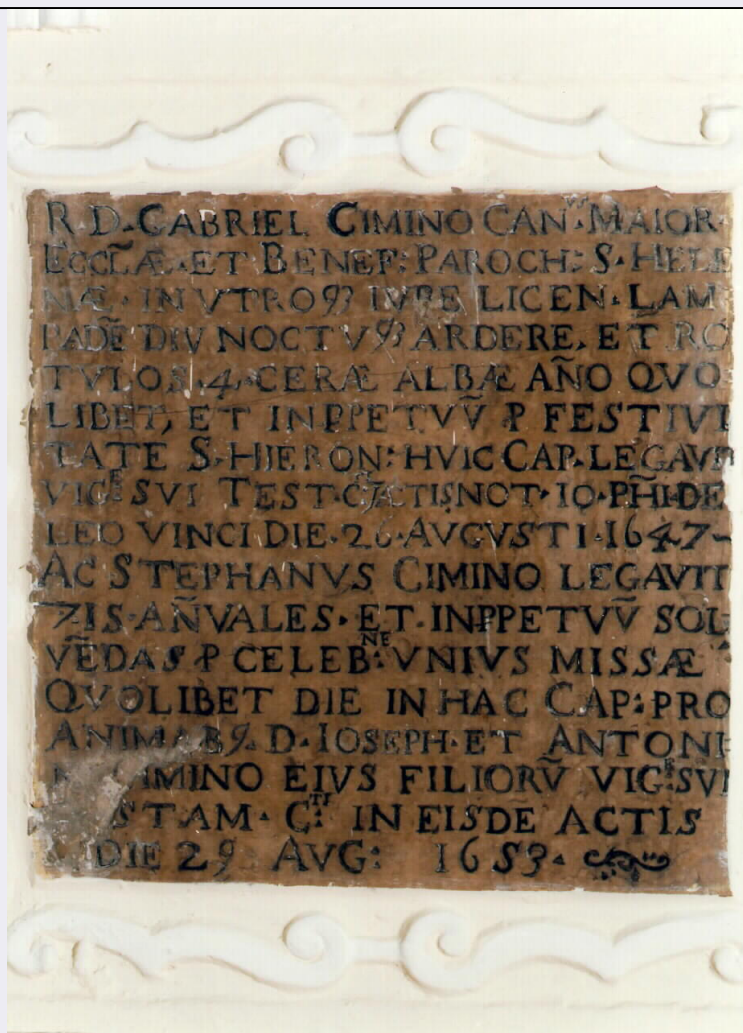 R. D. GABRIEL CIMINO CAN.ᵛˢ MAIOR.
ECCL̃Æ. ET BENEF: PAROCH: S. HELE
NÆ. IN VTROQ3 IVRE LICEN. LAM
PADẼ DIV NOCTVQ3 ARDERE, ET RO
TVLOS .4. CERÆ ALBÆ AÑO QVO
LIBET, ET INPPETVV̄ P FESTIVI
TATE S. HIERON: HVIC CAP. LEGAVIT
VIG:ᴱ SVI TEST. ACTIS NOT. IO. PH̃I. DE
LEO VINCI DIE. 26. AVGVSTI. 1647
AC STEPHANVS CIMINO LEGAVIT
7. IS. AÑVALES. ET. INPPETVV̄ SOL
VẼDAS P CELEB:ᴺᴱ VNIVS MISSÆ
QVOLIBET DIE IN HAC CAP: PRO
ANIMAB9. D. IOSEPH. ET ANTONI
CIMINO EIVS FILIORV̄ VIG:ᴱ SVI
STAM. C:ᵀᴵ IN EISDE ACTIS
DIE 29 AVG: 1653.